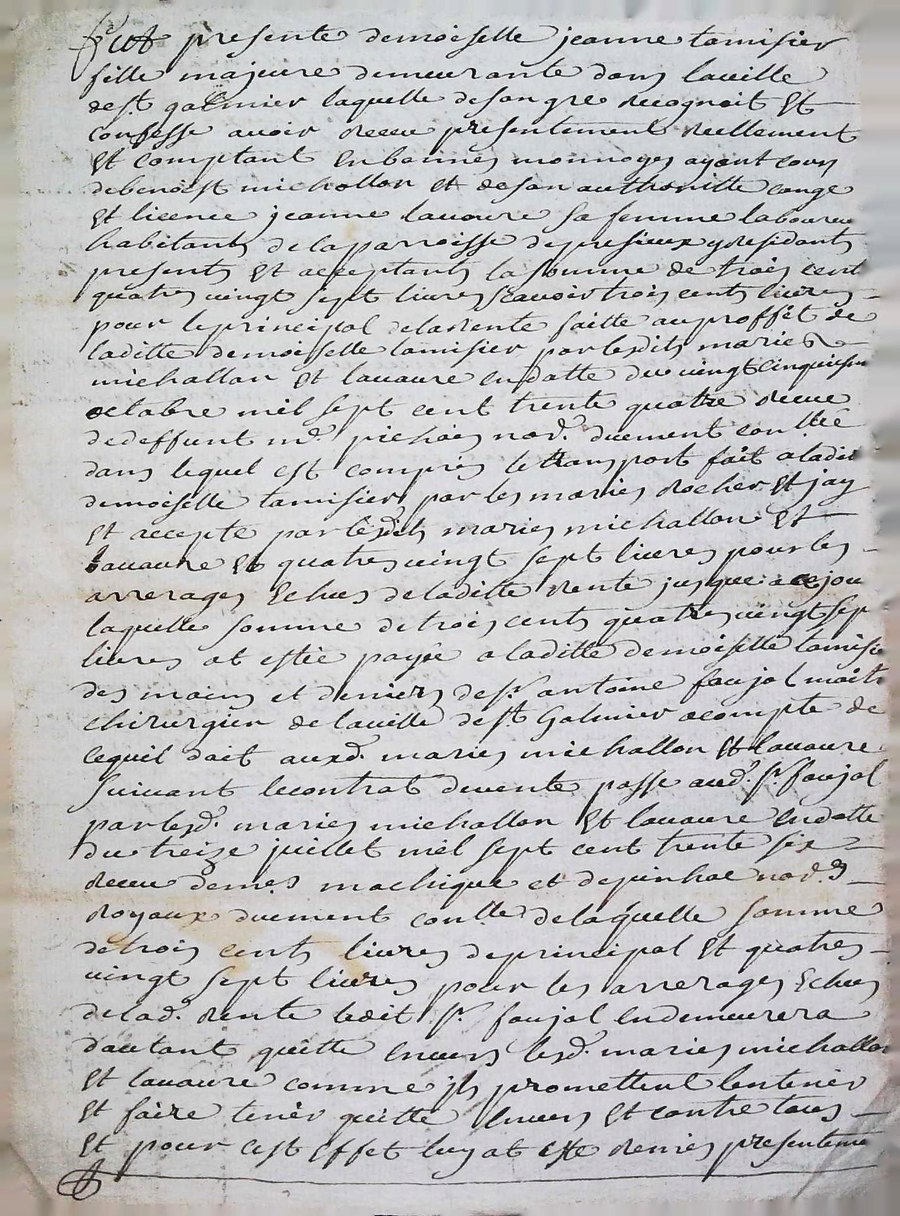 fut presente demoiselle jeanne tamisier
fille majeure demeurante dans laville
de st. galmier laquelle desongre recognoit Et
confesse avoir receu presentement reellement
Et comptant Enbonnes monnoyes ayant cours
debenoist michallon et deson authoritte conge
Et licence jeanne lauaure sa femme laboureu
habitants delaparroisse deprecieux y residants
presents Et acceptants lasomme de trois cent
quatres vingt sept livres scavoir trois cents livres
pour leprincipal delarente faitte auproffit de
laditte demoiselle tamisier parlesdits maries
michallon Et lauaure endatte du vingtcinquiesm
octobre mil sept cent trente quatre receue
dedeffunt me. not. duement conllee
dans lequel est compris le transport fait aladite
demoiselle tamisier par les maries rocher Et jay
Et accepte par lesdits maries michallon Et
Lauaure Et quatres vingt sept livres pour les
arrerages Echus deladitte rente jusque a ce jou
laquelle somme detrois cents quatres vingt sep
livres at estée payée aladitte demoiselle tamisie
des mains et deniers de sr. antoine faujol maitr
chirurgien de laville de st. Galmier acompte de
cequil doit auxd. maries michallon Et lauaure
suivant lecontrat devente passe aud. sr. faujol
parlesd. maries michallon Et lauaure endatte
du treize juillet mil sept cent trente six
receu demes machique et depinhac not.
Royaux duement conllee delaquelle somme
detrois cents livres deprincipal Et quatres
vingt sept livres pour les arrerages Echus
delad. rente ledit sr. faujol endemeurera
dautant quitte envers lesd. maries michallon
Et lauaure comme ils promettent lentenir
Et faire tenir quitte Envers Et contre tous
Et pour cest Effet luy at este remis presenteme